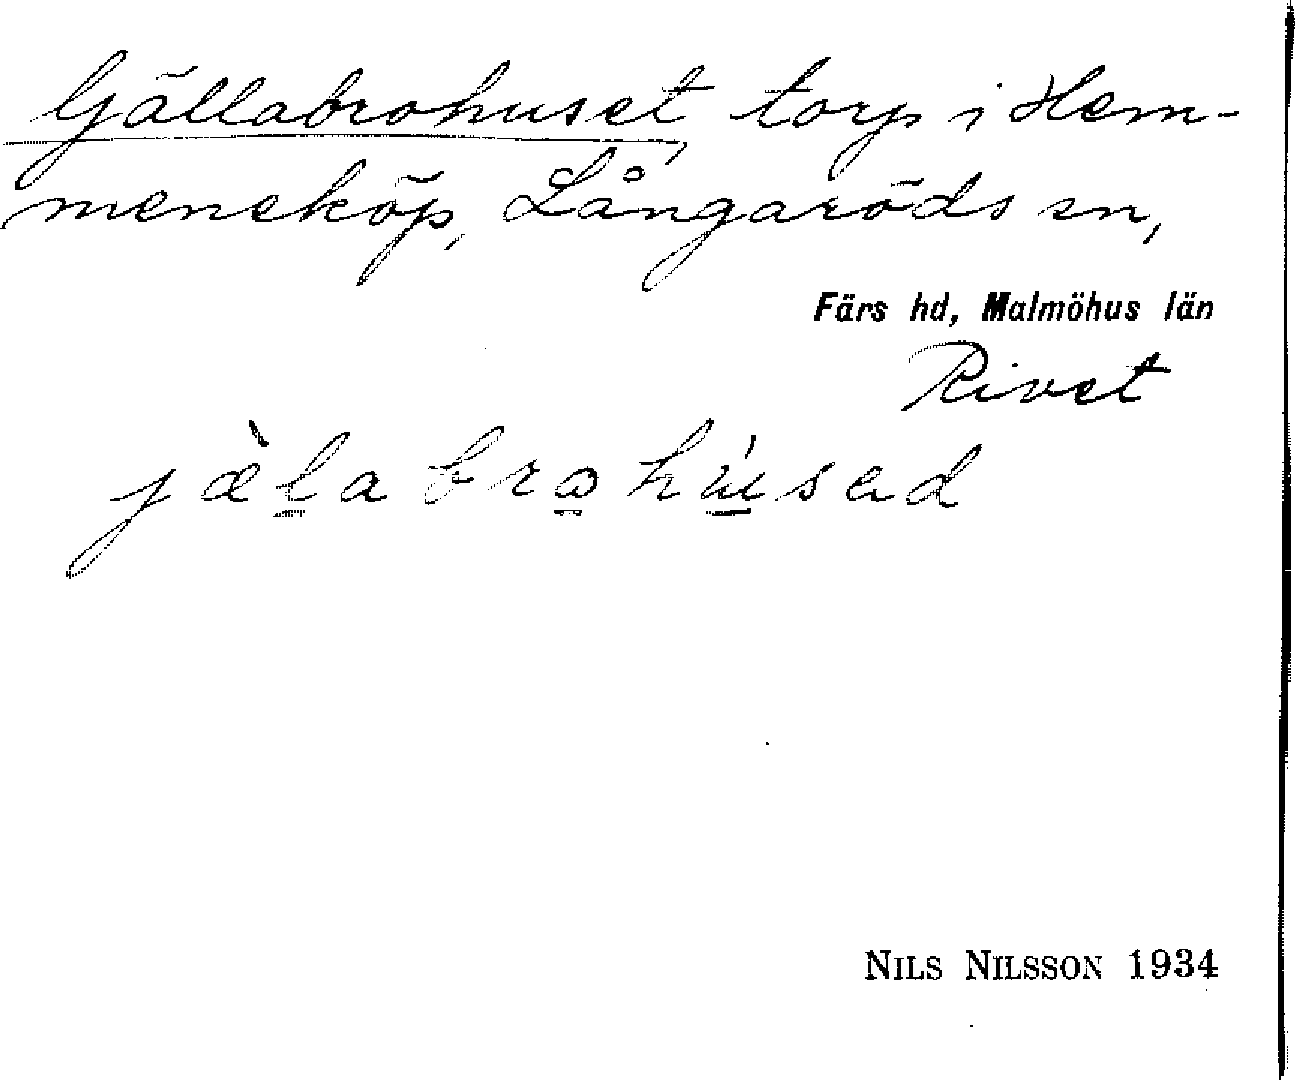 Gjällabrohuset, torp i Hem-
meneköp, Långaröds sn,
Färs hd, Malmöhus län
Rivet
jæ̀l̲abrɷ̲hú̲sad
NILS NILSSON 1934